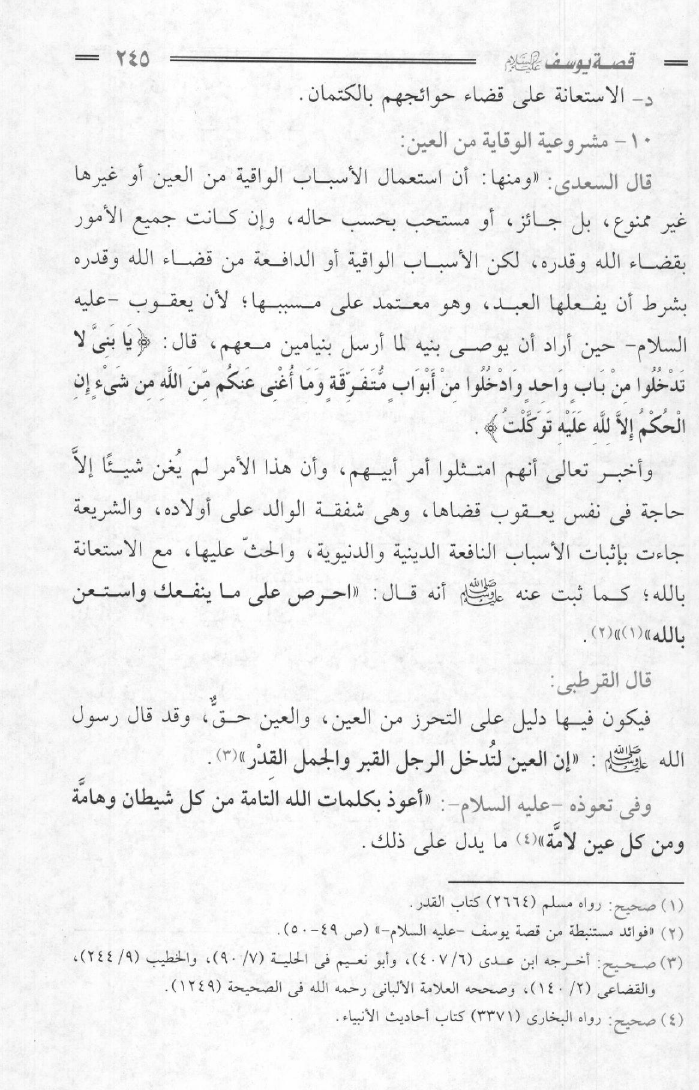 قصة يوسف عليه السلام ٢٤٥
د- الاستعانة على قضاء حوائجهم بالكتمان.
١٠- مشروعية الوقاية من العين:
قال السعدى: «ومنها: أن استعمال الأسباب الواقية من العين أو غيرها
غير ممنوع، بل جائز، أو مستحب بحسب حاله، وإن كانت جميع الأمور
بقضاء الله وقدره، لكن الأسباب الواقية أو الدافعة من قضاء الله وقدره
بشرط أن يفعلها العبد، وهو معتمد على مسببها؛ لأن يعقوب -عليه
السلام- حين أراد أن يوصى بنيه لما أرسل بنيامين معهم، قال: ﴿يَا بَنِىَّ لا
تَدْخُلُوا مِنْ بَابٍ وَاحِدٍ وَادْخُلُوا مِنْ أَبْوَابٍ مُّتَفَرِّقَةٍ وَمَا أُغْنِى عَنكُم مِّنَ اللَّهِ مِن شَىْءٍ إِنِ
الْحُكْمُ إِلاَّ لِلَّهِ عَلَيْهِ تَوَكَّلْتُ﴾.
وأخبر تعالى أنهم امتثلوا أمر أبيهم، وأن هذا الأمر لم يُغن شيئًا إلاَّ
حاجة فى نفس يعقوب قضاها، وهى شفقة الوالد على أولاده، والشريعة
جاءت بإثبات الأسباب النافعة الدينية والدنيوية، والحثّ عليها، مع الاستعانة
بالله؛ كما ثبت عنه ﷺ أنه قال: «احرص على ما ينفعك واستعن
بالله»(١)»(٢).
قال القرطبى:
فيكون فيها دليل على التحرز من العين، والعين حقٌّ، وقد قال رسول
الله ﷺ : «إن العين لتُدخل الرجل القبر والجمل القِدْر»(٣).
وفى تعوذه -عليه السلام-: «أعوذ بكلمات الله التامة من كل شيطان وهامَّة
ومن كل عين لامَّة»(٤) ما يدل على ذلك.
(١) صحيح: رواه مسلم (٢٦٦٤) كتاب القدر.
(٢) «فوائد مستنبطة من قصة يوسف -عليه السلام-» (ص ٤٩-٥٠).
(٣) صحيح: أخرجه ابن عدى (٦/ ٤٠٧)، وأبو نعيم فى الحلية (٧/ ٩٠)، والخطيب (٩/ ٢٤٤)،
والقضاعى (٢/ ١٤٠)، وصححه العلامة الألبانى رحمه الله فى الصحيحة (١٢٤٩).
(٤) صحيح: رواه البخارى (٣٣٧١) كتاب أحاديث الأنبياء.